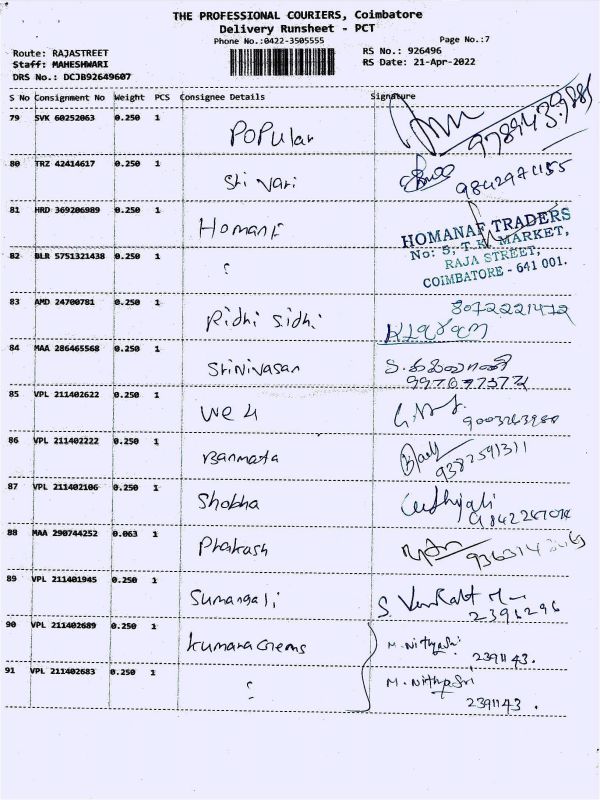 THE PROFESSIONAL COURIERS, Coimbatore
Delivery Runsheet - PCT
Phone No.:0422-3505555
Page No.:7
Route: RAJASTREET
RS No.: 926496
Staff: MAHESHWARI
RS Date: 21-Apr-2022
DRS No.: DCJB92649607
S No Consignment No Weight PCS Consignee Details Signature
79 SVK 60252063 0.250 1 POPular
80 TRZ 42414617 0.250 1 Sri Vari
81 HRD 369206989 0.250 1 Homanf
HOMANAF TRADERS
No: 5, T.K. MARKET,
RAJA STREET,
COIMBATORE - 641 001.
82 BLR 5751321438 0.250 1
83 AMD 24700781 0.250 1 Ridhi Sidhi 8072221472
84 MAA 286465568 0.250 1 Srinivasan
85 VPL 211402622 0.250 1 We 4
86 VPL 211402222 0.250 1 Banmata 9382591311
87 VPL 211402106 0.250 1 Shobha
88 MAA 290744252 0.063 1 Phakash
89 VPL 211401945 0.250 1 Sumangali S. Venkat
2396296
90 VPL 211402689 0.250 1 Kumaran Gems M. Nithyasri
2391143.
91 VPL 211402683 0.250 1 M. Nithyasri
2391143.